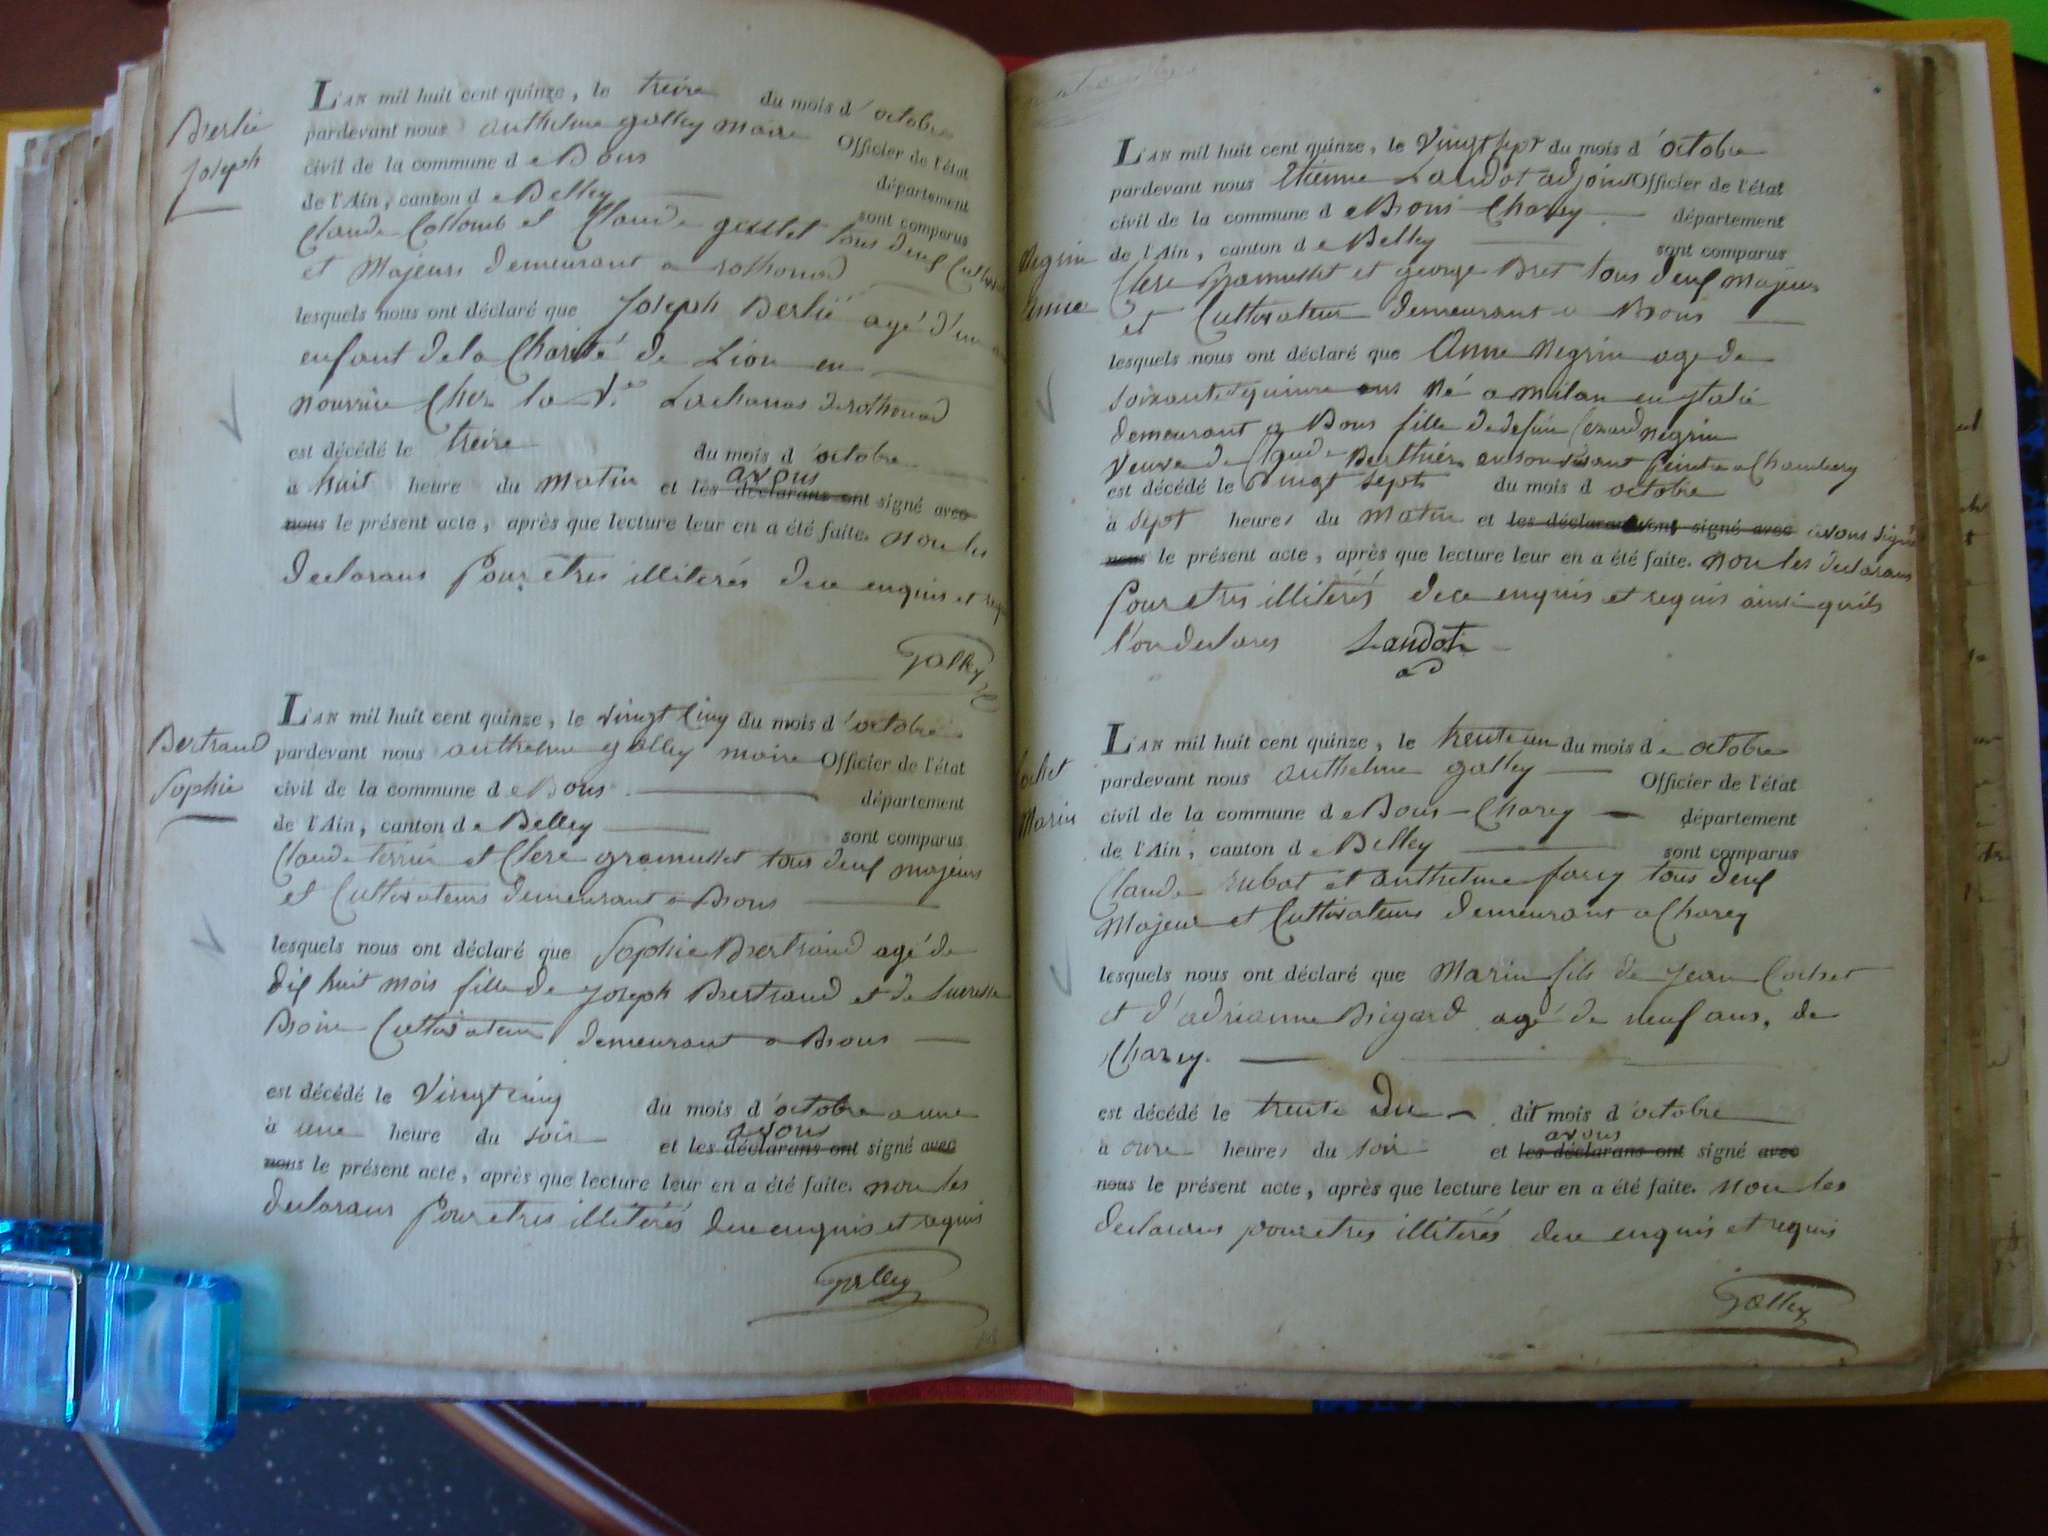 Berlié
Joseph
L'AN mil huit cent quinze, le treize du mois d'octobre
pardevant nous anthelme galley maire Officier de l'état
civil de la commune de Bons département
de l'Ain, canton de Belley sont comparus
Claude Collomb et Claude goullet tous deux Cultiv
et Majeurs demeurant a rothonod
lesquels nous ont déclaré que Joseph Berlié agé d'un an
enfant de la Charité de Lion en
nourrice Chez la Ve Lachanas de rothonod
est décédé le treize du mois d'octobre
à huit heure du matin et les déclarans ont avons signé avec
nous le présent acte, après que lecture leur en a été faite. non les
declarans pour etres illiterés de ce enquis et requis
Galley
Bertrand
Sophie
L'AN mil huit cent quinze, le vingt cinq du mois d'octobre
pardevant nous anthelme galley maire Officier de l'état
civil de la commune de Bons département
de l'Ain, canton de Belley sont comparus
Claude terrier et Clere gramusset tous deux majeurs
et Cultivateurs demeurant a Bons
lesquels nous ont déclaré que Sophie Bertrand agé de
dix huit mois fille de Joseph Bertrand et de
Cultivateur demeurant a Bons
est décédé le vingt cinq du mois d'octobre a une
à une heure du soir et les déclarans ont avons signé avec
nous le présent acte, après que lecture leur en a été faite. non les
declarans pour etres illiterés de ce enquis et requis
Galley
Negrin
Anne
L'AN mil huit cent quinze, le vingt sept du mois d'octobre
pardevant nous Etienne Landot adjoint Officier de l'état
civil de la commune de Bons Charey département
de l'Ain, canton de Belley sont comparus
Clere gramusset et george Bret tous deux majeurs
et Cultivateur demeurant a Bons
lesquels nous ont déclaré que Anne Negrin age de
soixante et quinze ans Né a milan en jtalie
demeurant a Bons fille de defun negrin
veuve de Claude Berthier en son vivant peintre a Chambery
est décédé le vingt sept du mois d octobre
à sept heures du matin et les déclarans ont signé avec avons signé
nous le présent acte, après que lecture leur en a été faite. non les declarans
pour etres illitérés de ce enquis et requis ainsi quils
l'on declares Landot
Cochet
Marin
L'AN mil huit cent quinze, le trente un du mois de octobre
pardevant nous anthelme galley Officier de l'état
civil de la commune de Bons Charey département
de l'Ain, canton de Belley sont comparus
Claude rubat et anthelme farcy tous deux
Majeur et Cultivateurs demeurant a Charey
lesquels nous ont déclaré que Marin fils de jean Cochet
et d'adrianne Brigard agé de neuf ans, de
Charey.
est décédé le trente du dit mois d'octobre
à onze heures du soir et les déclarans ont avons signé avec
nous le présent acte, après que lecture leur en a été faite. non les
declarans pour etres illitérés de ce enquis et requis
Galley